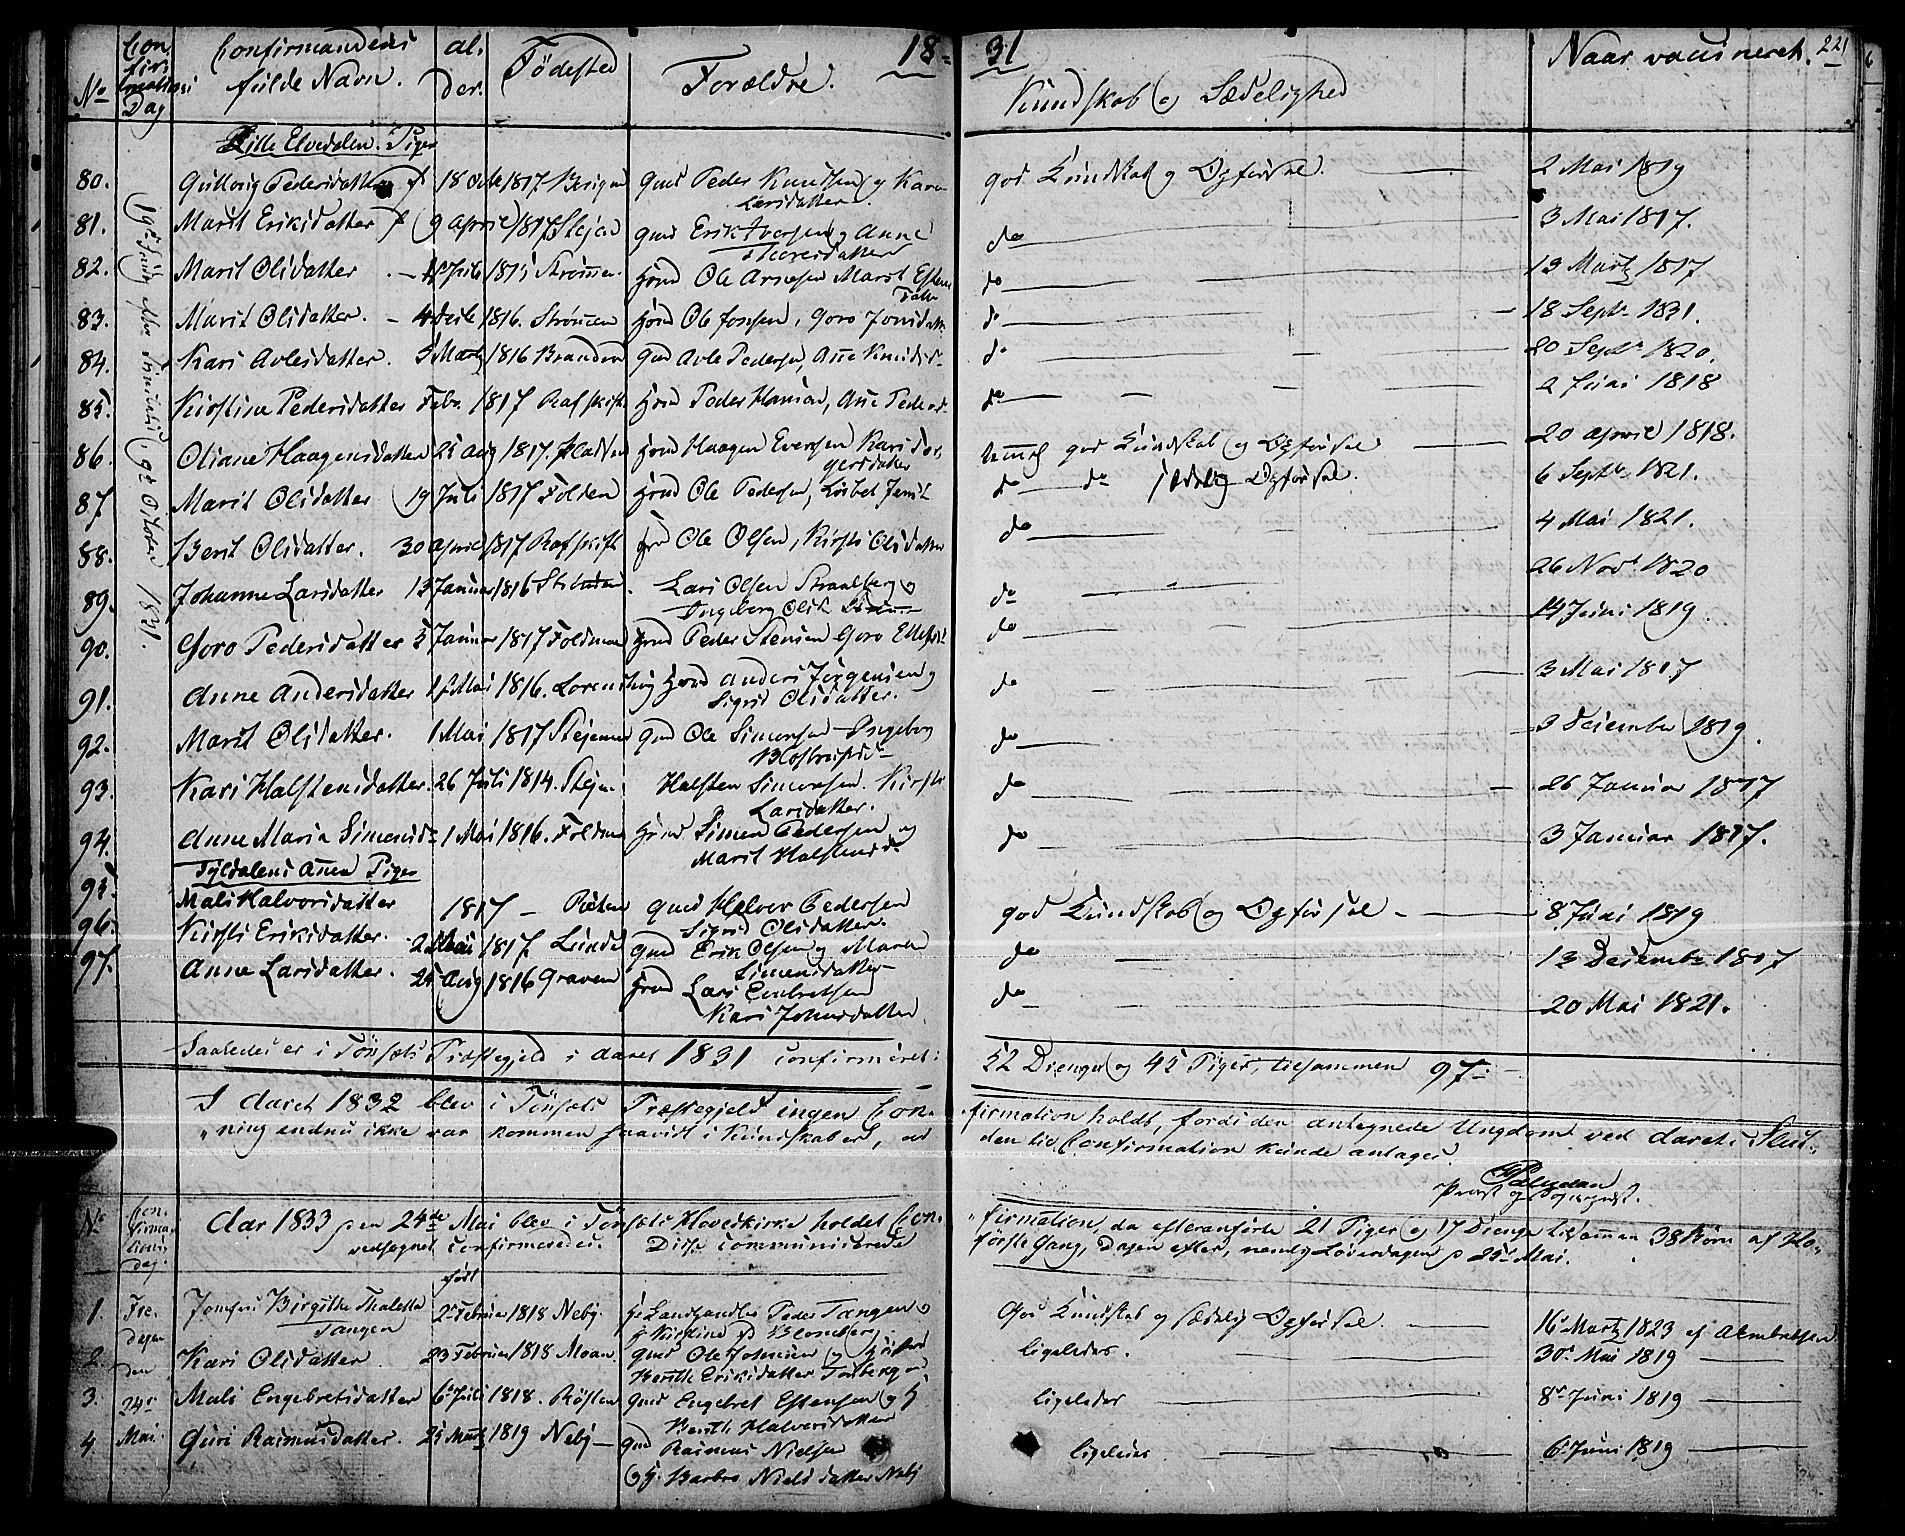 18 31 221
No Confirmations Dag Confirmandens fulde Navn. Alder. Fødested Forældre. Kundskab og Sædelighed Naar vaccineret.
Lille Elvedalen. Piger
19de Søndag efter Trinitatis 9de October 1831.
80. Gulloug Pedersdatter 18 Octr 1817 Gmd Peder Knudsen og Kari Larsdatter. god Kundskab og Opførsel. 2 Mai 1819
81. Marit Eriksdatter 9 April 1817 Stejen Gmd Erik Iversen og Anne Thoresdatter do 3 Mai 1817.
82. Marit Olsdatter. Juli 1815 Strømmen Hsmd Ole Arnesen Marit Estens Datter do 13 Martz 1817
83. Marit Olsdatter. 4 Decbr 1816. Strømmen Hsmd Ole Jonsen, Goro Jonsdatter do 18 Septr 1831.
84. Kari Avlesdatter. 5 Martz 1816 Branden Gmd Avle Pedersen, Anne Knudsd. do 20 Septr 1820.
85. Kirstine Pedersdatter Febr. 1817 Rafskift. Hsmd Peder Hansen, Anne Pedersd. do 2 Juni 1818
86. Oliane Haagensdatter 25 Aug 1817. Pladsen Hsmd Haagen Eversen Kari gersdatter god Kundskab og Opførsel 20 April 1818.
87. Marit Olsdatter 19 Juli 1817 Folden Hsmd Ole Pedersen, Lisbet Jensd. do do sædelig Opførsel. 6 Septbr 1821.
88. Berit Olsdatter. 30 April 1817 Rafskift Hsmd Ole Olsen, Kirsti Olsdatter do 4 Mai 1821.
89. Johanne Larsdatter 13 Januar 1816 Lars Olsen Straalberg og Ingeborg Olsd. do 26 Novbr 1820
90. Goro Pedersdatter 5 Januar 1817 Foldmoen Hsmd Peder Stensen Goro Ellefsd. do 14 Juni 1819.
91. Anne Andersdatter Mai 1816. Hsmd Anders Jørgensen og Sigrid Olsdatter. do 3 Mai 1817
92. Marit Olsdatter. 1 Mai 1817 Stejemoe Gmd Ole Simensen Ingeborg do 3 December 1819.
93. Kari Halstensdatter. 26 Juli 1814. Stejen Halsten Simensen. Kirsti Larsdatter. do 26 Januar 1817
94. Anne Maria Simensd. 1 Mai 1816. Foldmoe Hsmd Simen Pedersen og Marit Halstensd. do 3 Januar 1817.
Tyldalens Annex Piger
95. Mali Halvorsdatter 1817 Gmd Halvor Pedersen Sigrid Olsdatter. god Kundskab og Opførsel 8 Juni 1819
96. Kirsti Eriksdatter. Mai 1817. Lunde Gmd Erik Olsen og Maren Simensdatter do 13 December 1817
97. Anne Larsdatter. 25 Aug 1816 Graven Hsmd Lars Embretsen Kari Johnsdatter. do 20 Mai 1821.
Saaledes er i Tønsets Præstegjeld i Aaret 1831 confirmeret: 52 Drenge og 45 Piger, tilsammen 97
I Aaret 1832 blev i Tønsets Præstegjeld ingen Confirmation holdt, fordi den antegnede Ungdom ved Aarets Slut-
ning endnu ikke var kommen saavidt i Kundskaber, at den til Confirmation kunde antages.
Provst og Sognepræst.
No Confirmations dag. Aar 1833 den 24de Mai blev i Tønsets Hovedkirke holdet Confirmation, da efteranførte 21 Piger og 17 Drenge tilsammen 38 Børn af Ho-
vedsognet confirmeredes. Disse communicerede første Gang, Dagen efter, nemlig Løverdagen d 25de Mai.
Fredagen den 24de Mai.
født
1. Jomfru Birgithe Thalette Tangen 2 Februar 1818 Neby. Hr Landhandler Peder Tangen og H. Kirstine fd Blomberg God Kundskab og sædelig Opførsel. 16 Martz 1823 af Alembretsen
2. Kari Olsdatter 23 Februar 1818 Moan. Gmd Ole Johnsen og Hustru Berith Eriksdatter ligeledes. 30 Mai 1819
3. Mali Engebretsdatter 6 Juli 1818. Røsten Gmd Engebret Estensen og H. Berith Halvorsdatter ligeledes 8 Juni 1819
4. Guri Rasmusdatter. 25 Martz 1819 Neby Gmd Rasmus Nielsen og H. Barbro Nielsdatter Neby ligeledes 6 Juni 1819